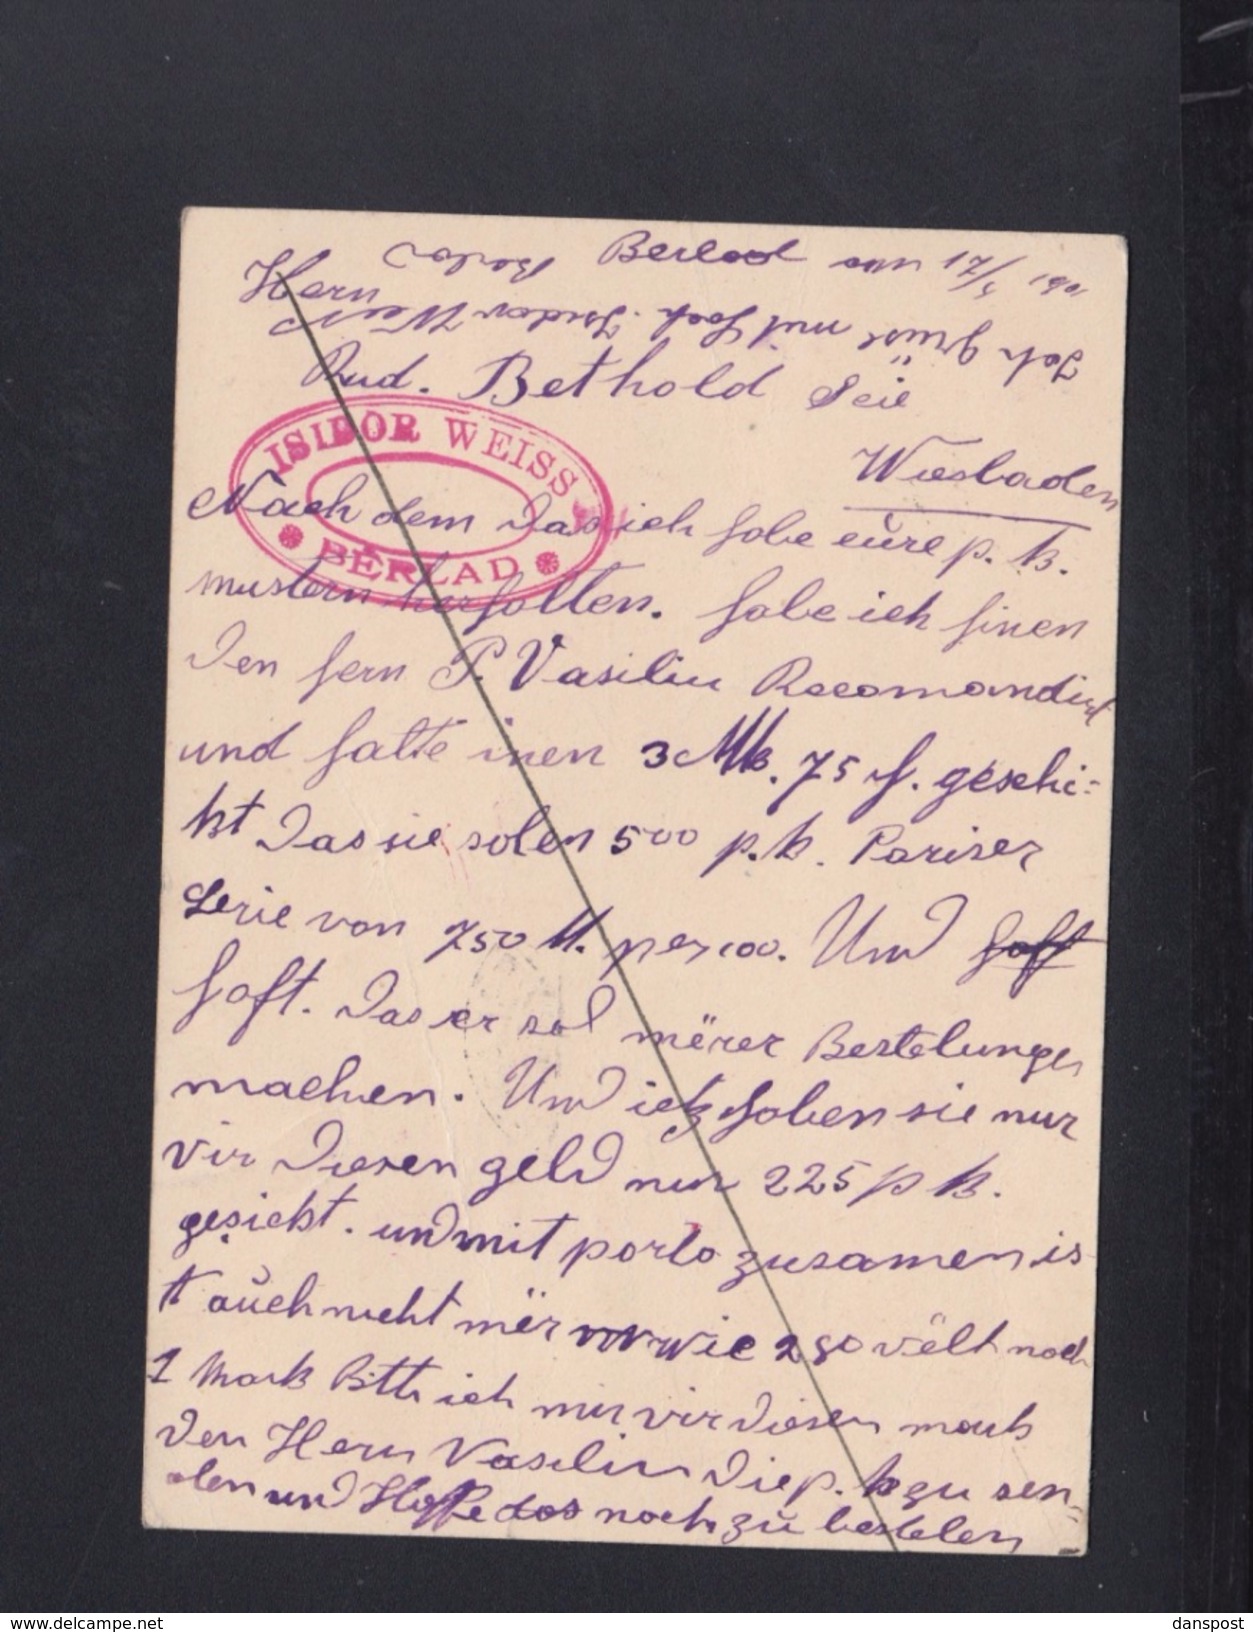 Berlad am 17/5 1901
Herrn
Rud. Bethold
Wiesbaden
ISIDOR WEISS
BERLAD
Nach dem das ich habe eure p. k.
mustern herhalten. habe ich hinen
den hern P. Vasiliu Recomandirt
und hatte inen 3 Mk. 75 f. geschi-
kt das sie solen 500 p.k. Pariser
Serie von 750 M. per 100. Und
hoft. das er sol mërer Bestelungen
machen. Und ietz haben sie nur
vir diesen geld nur 225 p k.
gesickt. und mit porto zusamen is
t auch nicht mër wie 2 80 vëlt noch
1 Mark Bitte ich mir vir diesen mark
den Hern Vasiliu die p. k zu sen-
den und Hoffe das noch zu bestelen
Ich grüse mit Hoch. Isidor Weiss
Berlad
delcampe.net
danspost